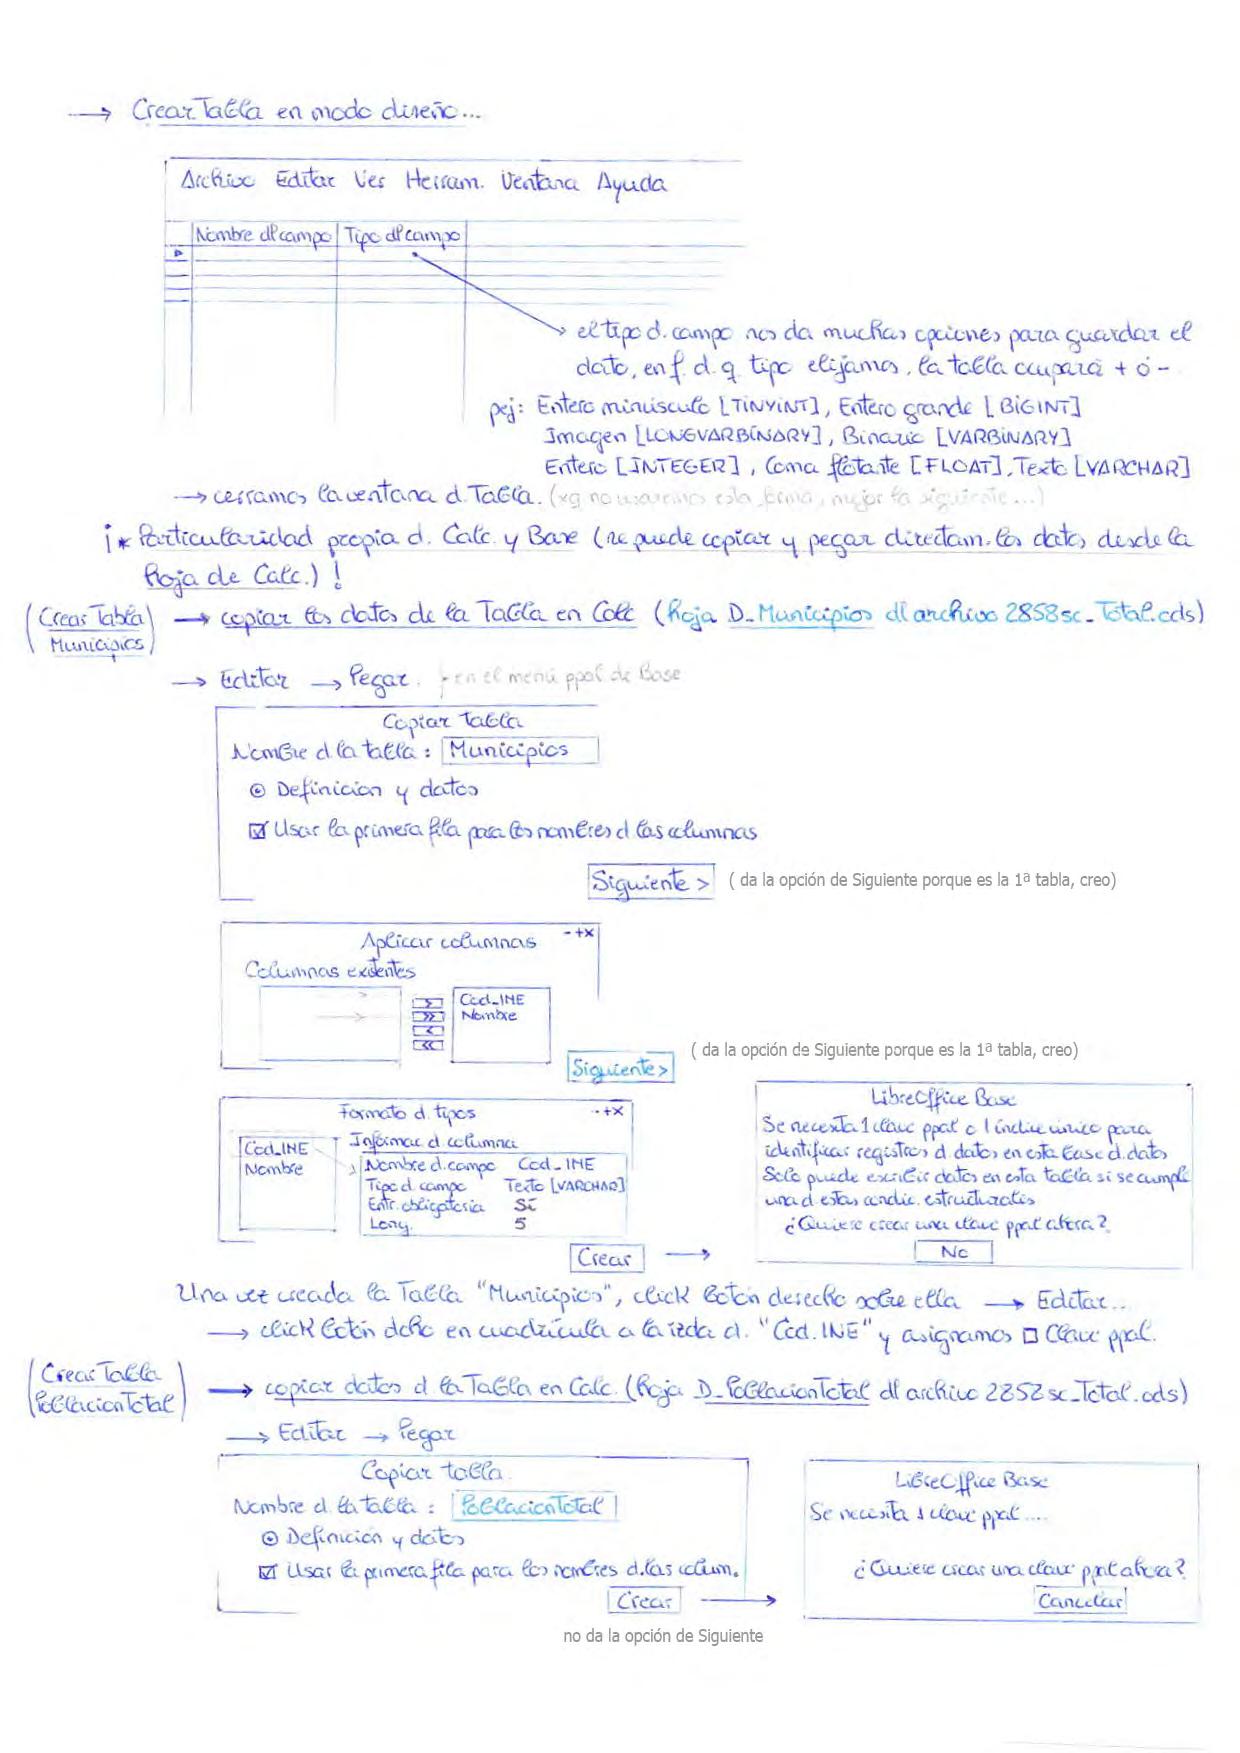 → Crear Tabla en modo diseño...
Archivo Editar Ver Herram. Ventana Ayuda
Nombre dl campo Tipo dl campo
→ el tipo d. campo nos da muchas opciones para guardar el
dato, en f. d. q. tipo elijamos, la tabla ocupará + ó -
pej: Entero minúsculo [TINYINT], Entero grande [BIGINT]
Imagen [LONGVARBINARY], Binario [VARBINARY]
Entero [INTEGER], Coma flotante [FLOAT], Texto [VARCHAR]
→ cerramos la ventana d. Tabla. (xq no usaremos esta forma, mejor la siguiente...)
¡* Particularidad propia d. Calc. y Base (se puede copiar y pegar directam. los datos desde la
Hoja de Calc.) !
(Crear Tabla Municipios) → copiar los datos de la Tabla en Calc (Hoja D_Municipios dl archivo 2858sc_Total.ods)
→ Editar → Pegar. } en el menú ppal de Base
Copiar tabla
Nombre d la tabla : Municipios
Definición y datos
☑ Usar la primera fila para los nombres d las columnas
Siguiente > ( da la opción de Siguiente porque es la 1ª tabla, creo)
Aplicar columnas - + x
Columnas existentes
> Cod_INE
>> Nombre
<
<<
Siguiente > ( da la opción de Siguiente porque es la 1ª tabla, creo)
Formato d. tipos - + x
Cod_INE Informac d. columna
Nombre Nombre d. campo Cod_INE
Tipo d. campo Texto [VARCHAR]
Entr. obligatoria Sí
Long. 5
Crear →
LibreOffice Base
Se necesita 1 clave ppal o 1 índice único para
identificar registros d datos en esta base d. datos
Solo puede escribir datos en esta tabla si se cumple
una d estas condic. estructurales
¿Quiere crear una clave ppal ahora?
No
Una vez creada la Tabla "Municipios", click botón derecho sobre ella → Editar...
→ click botón dcho en cuadrícula a la izda d. "Cod.INE" y asignamos □ Clave ppal.
(Crear Tabla PoblacionTotal) → copiar datos d la Tabla en Calc. (Hoja D_PoblacionTotal dl archivo 2858sc_Total.ods)
→ Editar → Pegar
Copiar tabla
Nombre d. la tabla : PoblacionTotal
Definición y datos
☑ Usar la primera fila para los nombres d.las colum.
Crear →
no da la opción de Siguiente
LibreOffice Base
Se necesita 1 clave ppal....
¿Quiere crear una clave ppal ahora?
Cancelar